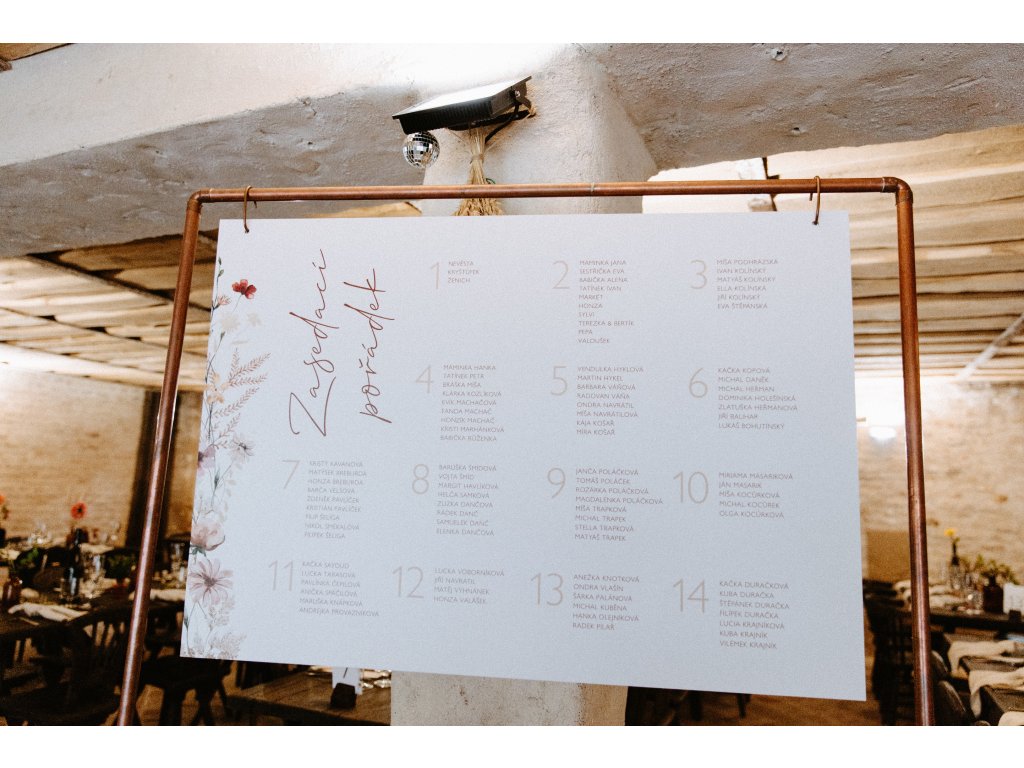 Zasedací
pořádek
1
NEVĚSTA
KRYŠTŮFEK
ŽENICH
2
MAMINKA JANA
SESTŘIČKA EVA
BABIČKA ALENA
TATÍNEK IVAN
MARKET
HONZA
SYLVI
TEREZKA & BERTÍK
PEPA
VALOUŠEK
3
MÍŠA PODHRÁZSKÁ
IVAN KOLÍNSKÝ
MATYÁŠ KOLÍNSKÝ
ELLA KOLÍNSKÁ
JIŘÍ KOLÍNSKÝ
EVA ŠTĚPÁNSKÁ
4
MAMINKA HANKA
TATÍNEK PETR
BRÁŠKA MÍŠA
KLÁRKA KOZLÍKOVÁ
EVIK MACHAČOVÁ
FANDA MACHAČ
HONZÍK MACHAČ
KRISTI MARHANKOVÁ
BABIČKA RŮŽENKA
5
VENDULKA HYKLOVÁ
MARTIN HYKEL
BARBARA VÁŇOVÁ
RADOVAN VÁŇA
ONDRA NAVRÁTIL
MÍŠA NAVRÁTILOVÁ
KÁJA KOŠAŘ
MÍRA KOŠAŘ
6
KAČKA KOPOVÁ
MICHAL DANĚK
MICHAL HEŘMAN
DOMINIKA HOLEŠINSKÁ
ZLATUŠKA HEŘMANOVÁ
JIŘÍ BAUHAR
LUKÁŠ BOHUTÍNSKÝ
7
KRISTÝ KAVANOVÁ
MATÝSEK BREBURDA
HONZA BREBURDA
BARČA VELSOVÁ
ZDENĚK PAVLÍČEK
KRISTIÁN PAVLÍČEK
FILIP ŠELIGA
NIKOL SPĚKALOVÁ
FILÍPEK ŠELIGA
8
BARUŠKA ŠMÍDOVÁ
VOJTA ŠMÍD
MARGIT HAVLÍKOVÁ
HELČA SAMKOVÁ
ZUZKA DANČOVÁ
RADEK DANČ
SAMUELEK DANČ
ELENKA DANČOVÁ
9
JANČA POLÁČKOVÁ
TOMÁŠ POLÁČEK
ROZÁRKA POLÁČKOVÁ
MAGDALENKA POLÁČKOVÁ
MÍŠA TRAPKOVÁ
MICHAL TRAPEK
STELLA TRAPKOVÁ
MATYÁŠ TRAPEK
10
MIRIAMA MASARIKOVÁ
JÁN MASARIK
MÍŠA KOCŮRKOVÁ
MICHAL KOCŮREK
OLGA KOCŮRKOVÁ
11
KAČKA SAYOUD
LUCKA TARASOVÁ
PAVLÍNKA ČEHLOVÁ
ANIČKA SPÁČILOVÁ
MARUŠKA KNÁPKOVÁ
ANDREJKA PROVAZNÍKOVÁ
12
LUCKA VOBORNÍKOVÁ
JIŘÍ NAVRÁTIL
MATĚJ VYHNÁNEK
HONZA VALÁŠEK
13
ANEŽKA KNOTKOVÁ
ONDRA VLAŠÍN
ŠÁRKA PALÁNOVÁ
MICHAL KUBĚNA
HANKA OLEJNÍKOVÁ
RADEK PILAŘ
14
KAČKA DURAČKOVÁ
KUBA DURAČKA
ŠTĚPÁNEK DURAČKA
FILÍPEK DURAČKA
LUCIA KRAJNÍKOVÁ
KUBA KRAJNÍK
VILÉMEK KRAJNÍK